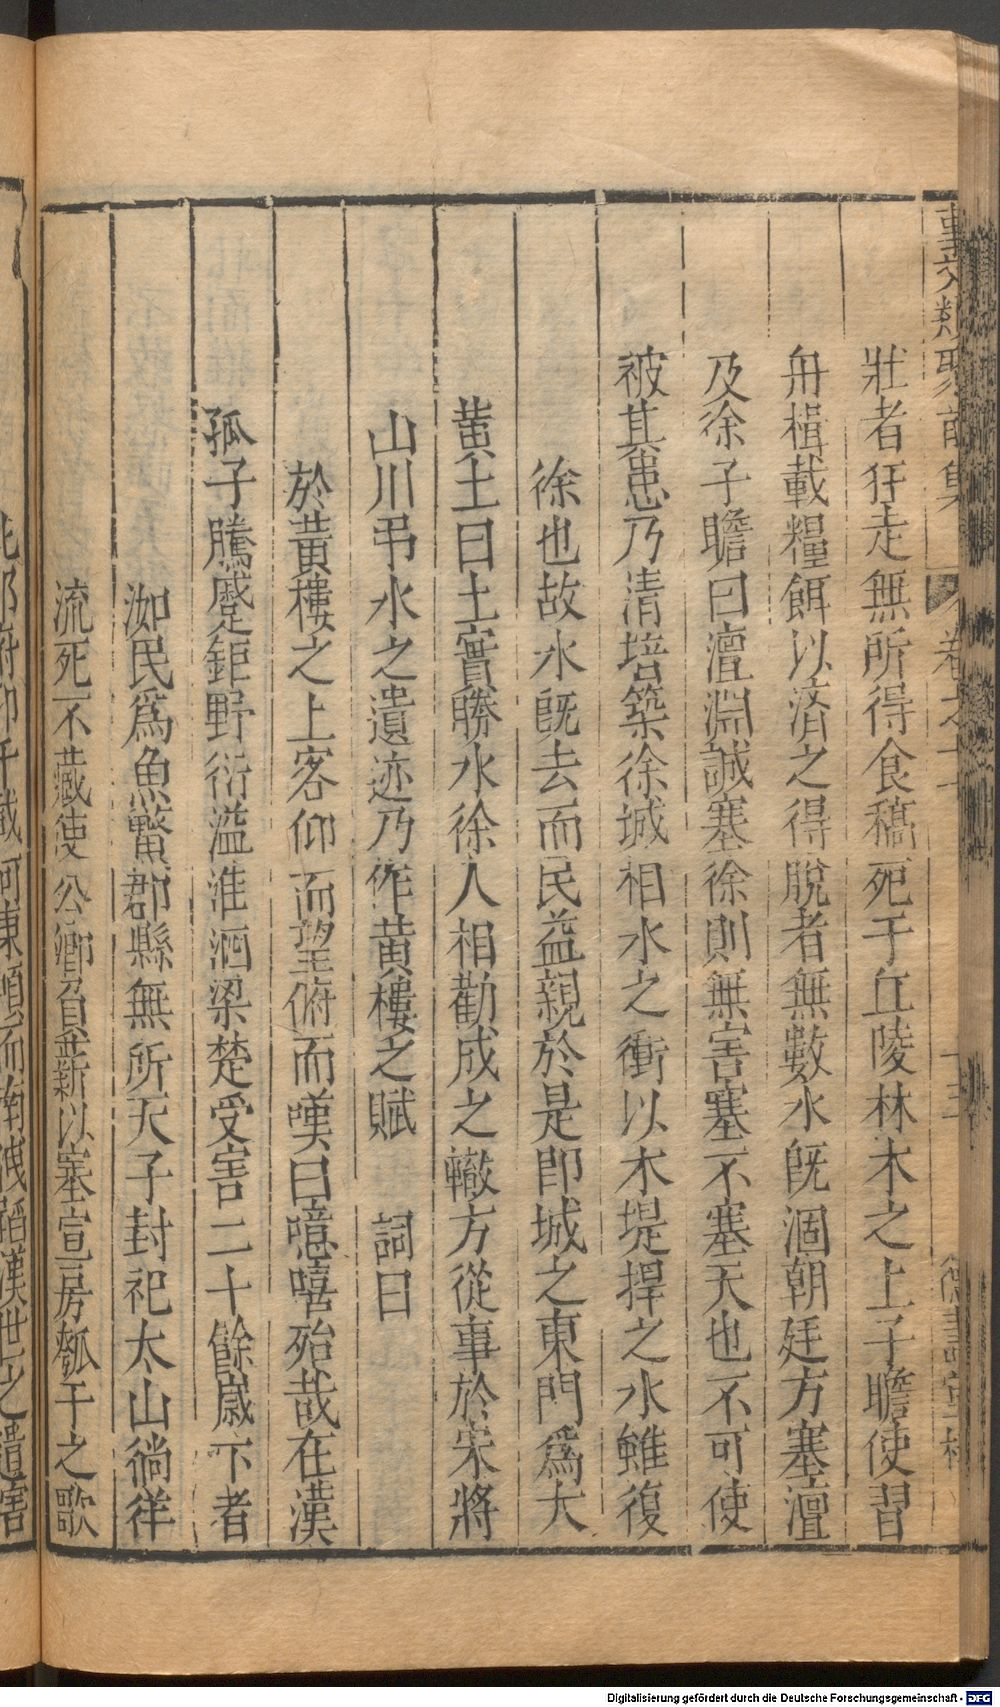 事文類聚前集 卷之十 十三
壯者狂走無所得食稿死于丘陵林木之上子瞻使習
舟楫載糧餌以濟之得脫者無數水旣涸朝廷方塞澶
及徐子瞻曰澶淵誠塞徐則無害塞不塞天也不可使
被其患乃清培築徐城相水之衝以木堤捍之水雖復
徐也故水旣去而民益親於是即城之東門爲大
黃土曰土實勝水徐人相勸成之轍方從事於宋將
山川弔水之遺迹乃作黃樓之賦 詞曰
於黃樓之上客仰而望俯而嘆曰噫嘻殆哉在漢
孤子騰蹙鉅野衍溢淮泗梁楚受害二十餘歲下者
洳民爲魚鱉郡縣無所天子封祀太山徜徉
流死不藏使公卿負薪以塞宣房瓠子之歌